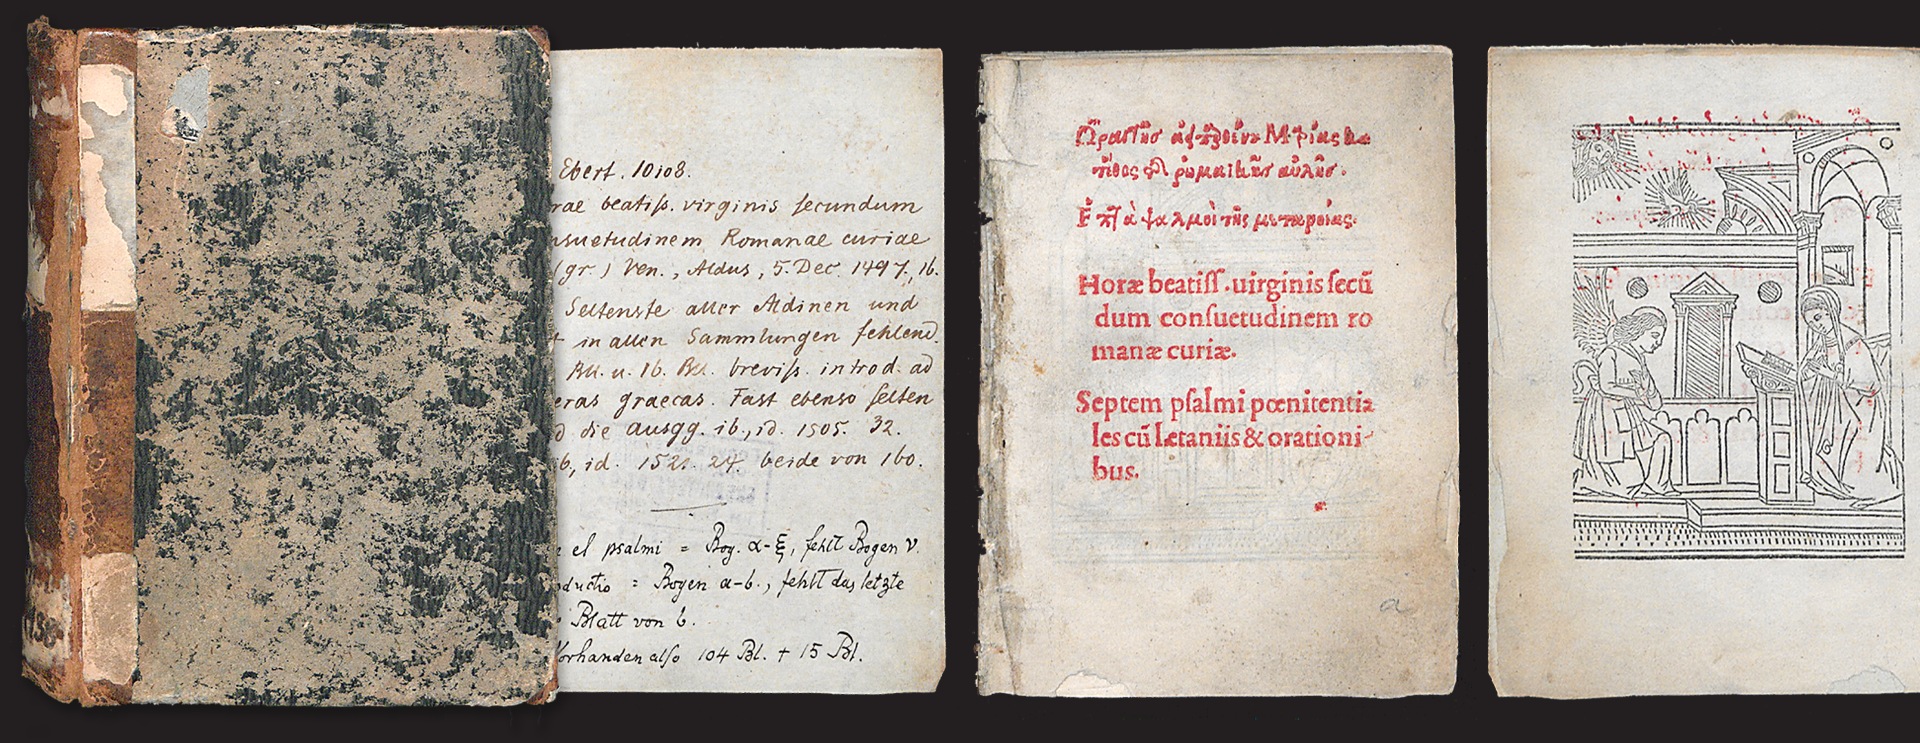 Ebert. 10108.
rae beatiſs. virginis ſecundum
nsuetudinem Romanae curiae
(gr.) Ven., Aldus, 5. Dec. 1497, 16.
Seltenste aller Aldinen und
in allen Sammlungen fehlend.
Bll. u. 16. Bll. breviſs. introd. ad
eras graecas. Fast ebenso ſelten
d die Ausgg. ib., id. 1505. 32.
b, id. 1521. 24. beide von 160.
el psalmi = Bog. α-ξ, fehlt Bogen ν.
oductio = Bogen a-b., fehlt das letzte
Blatt von b.
Vorhanden alſo 104 Bl. + 15 Bl.
ῥωμαϊκῆς αὐλῆς.
ψαλμοὶ τῆς μετανοίας.
Horæ beatiſſ. uirginis ſecū
dum conſuetudinem ro
manæ curiæ.
Septem pſalmi pœnitentia
les cū lætaniis & orationi-
bus.
a